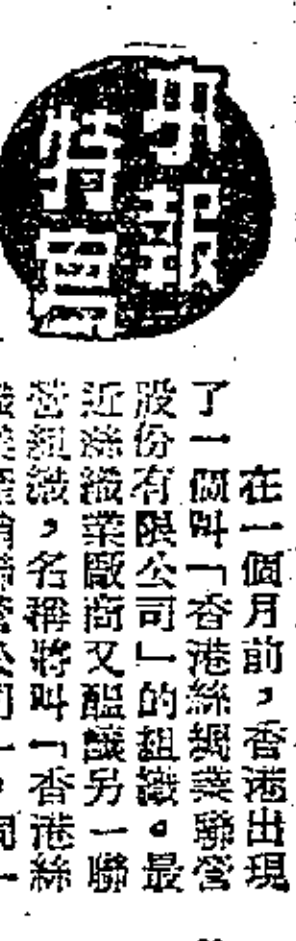 本報
特寫
在一個月前，香港出現
了一個叫「香港絲綢業聯營
股份有限公司」的組織。最
近絲織業廠商又醞議另一聯
營組織，名稱將叫「香港絲